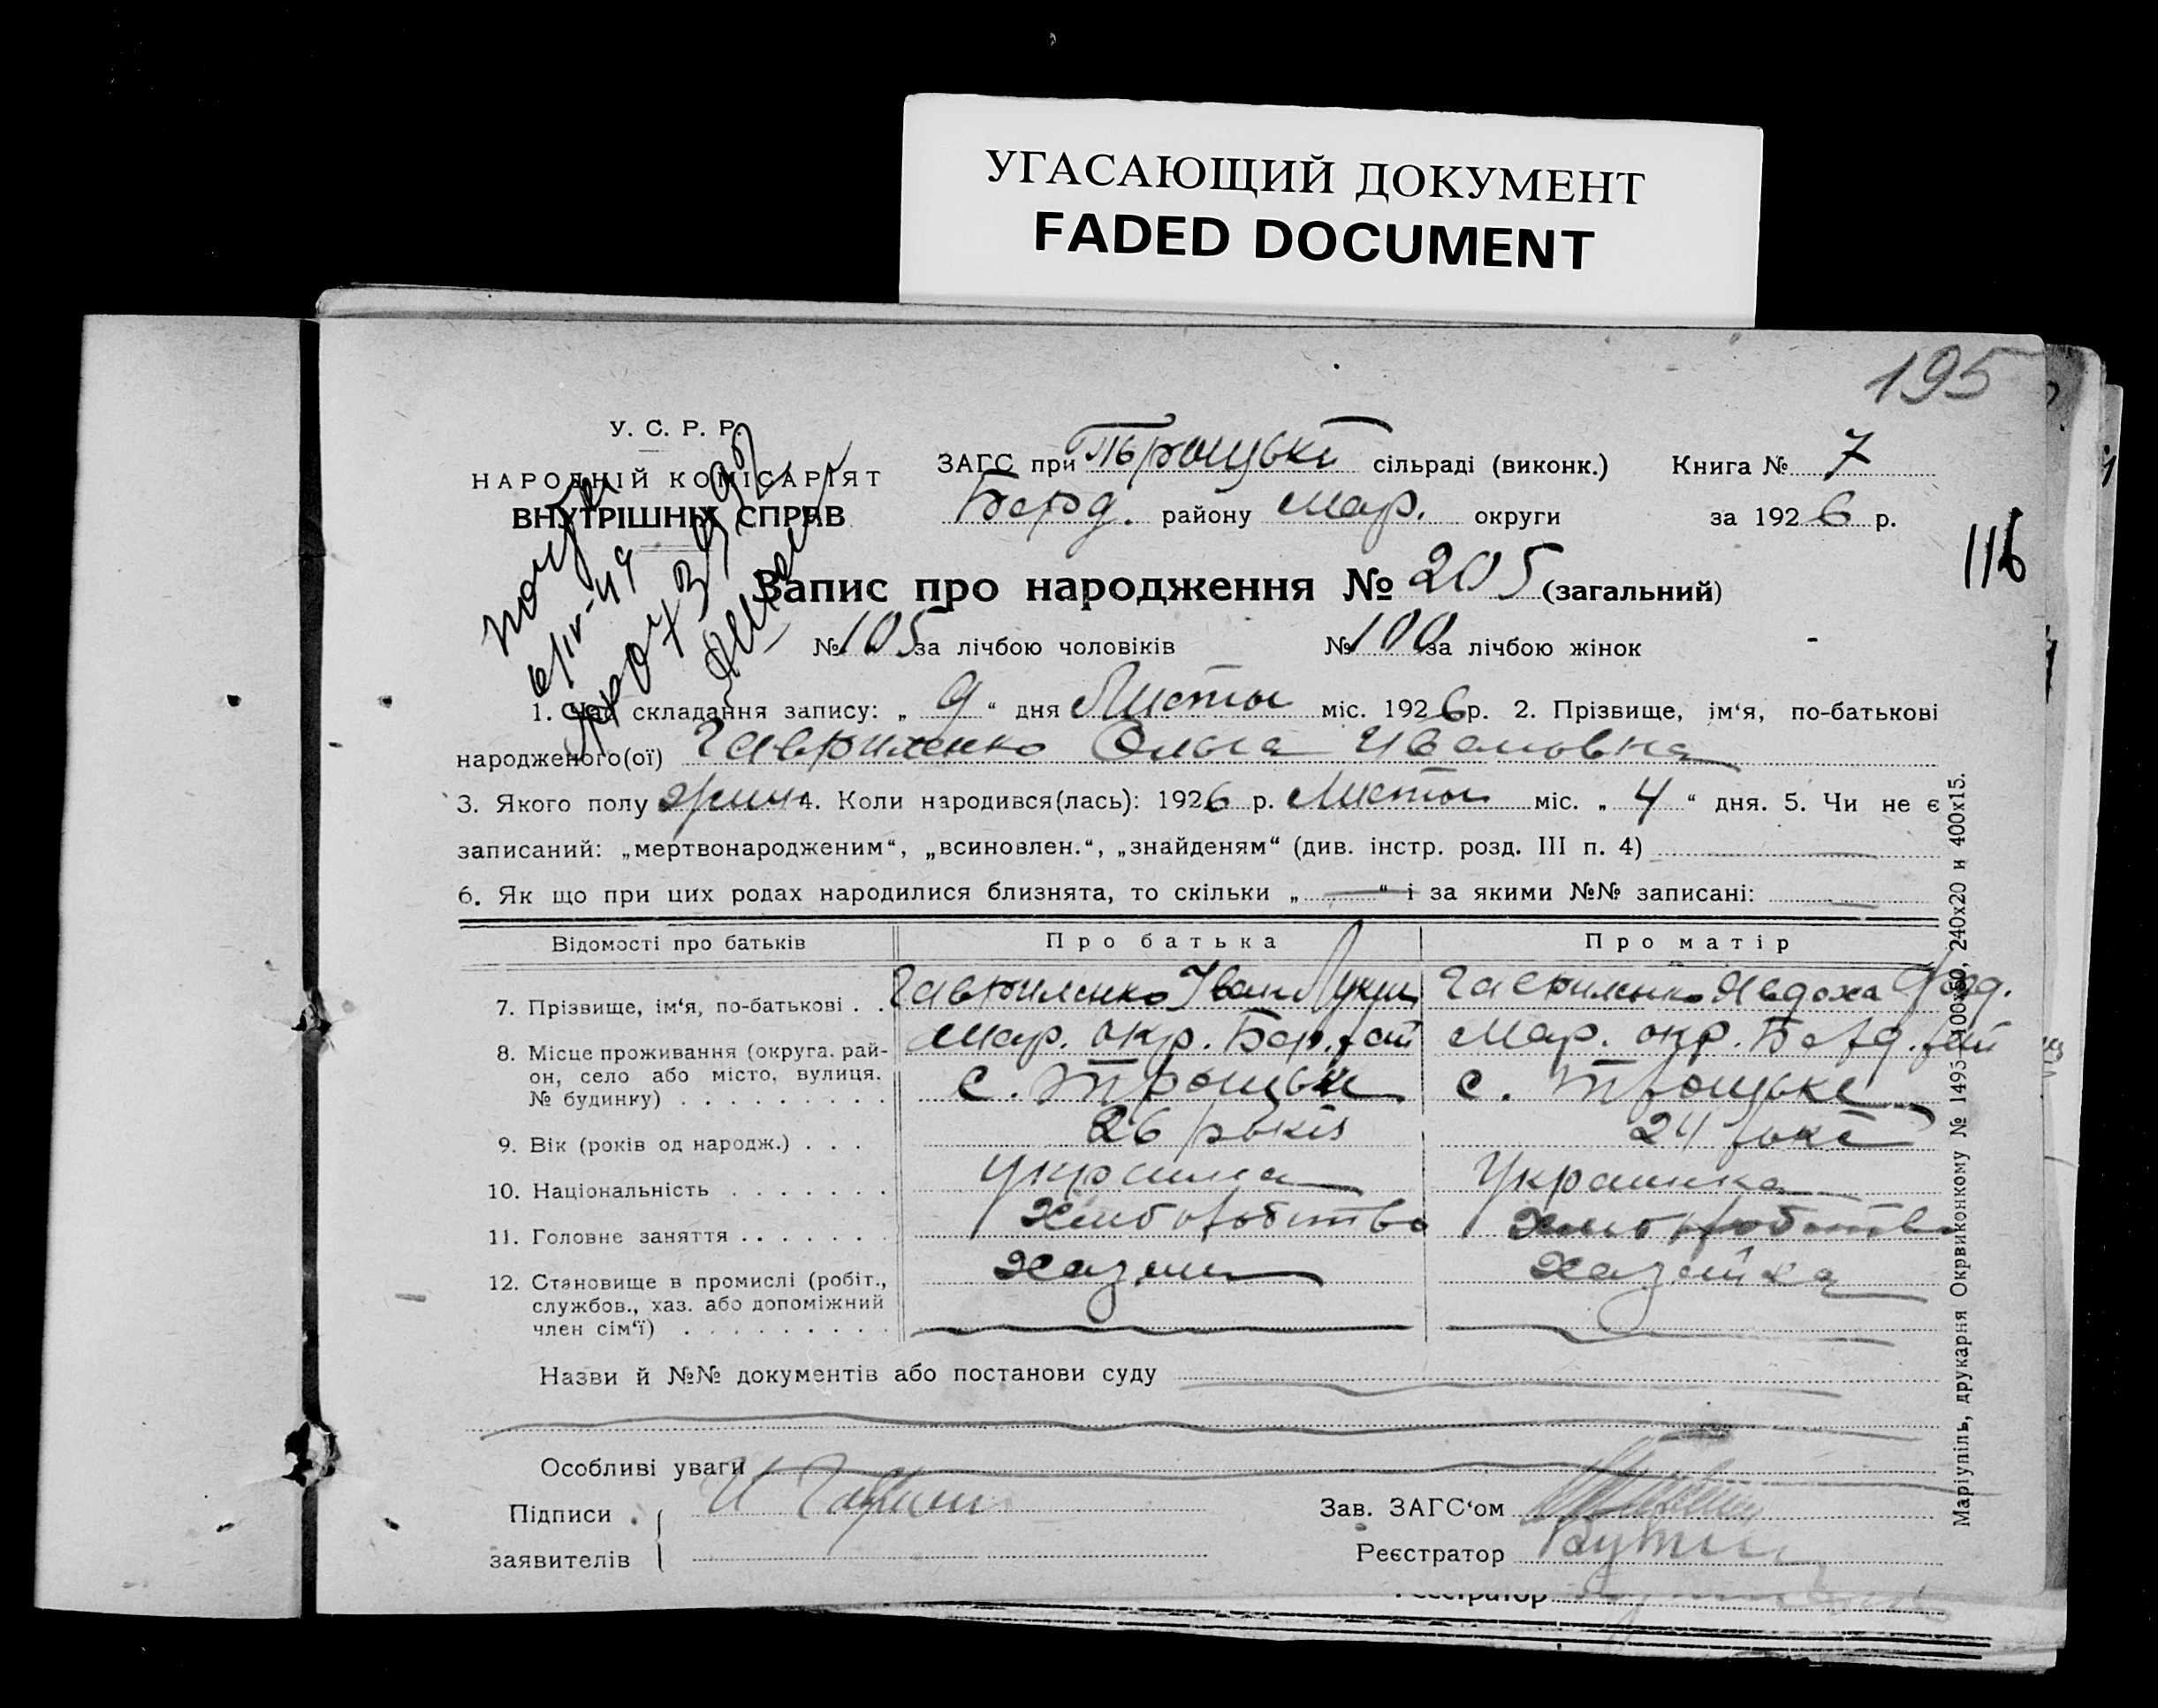 УГАСАЮЩИЙ ДОКУМЕНТ
FADED DOCUMENT
195
У. С. Р. Р.
НАРОДНІЙ КОМІСАРІЯТ
ВНУТРІШНІХ СПРАВ
ЗАГС при Трошуькі сільраді (виконк.) Книга № 7
Берд. району Мар. округи за 1926 р.
116
Запис про народження № 205 (загальний)
№ 105 за лічбою чоловіків № 100 за лічбою жінок
1. Час складання запису: „ 9 “ дня Листоп міс. 1926 р. 2. Прізвище, ім‘я, по-батькові
народженого(ої) Гавриленко Ольга Ивановна
3. Якого полу жин 4. Коли народився(лась): 1926 р. Листоп міс. „ 4 “ дня. 5. Чи не є
записаний: „мертвонародженим“, „всиновлен.“, „знайденям“ (див. інстр. розд. III п. 4)
6. Як що при цих родах народилися близнята, то скільки „ — “ і за якими №№ записані: —
Відомості про батьків Про батька Про матір
7. Прізвище, ім‘я, по-батькові . . Гавриленко Іван Лукич Гавриленко Явдоха
8. Місце проживання (округа. рай- Мар. окр. Бер. рай Мар. окр. Берд. рай
он, село або місто, вулиця.
№ будинку) . . . . . . . . . с. Троцьке с. Троцьке
9. Вік (років од народж.) . . . 26 років 24 рокі
10. Національність . . . . . . . Украинка
11. Головне заняття . . . . . . . Хлиборобство Хлиборобство
12. Становище в промислі (робіт., Хазяин Хазяйка
службов., хаз. або допоміжний
член сім‘ї) . . . . . . . . .
Назви й №№ документів або постанови суду
Особливі уваги
Підписи
заявителів
Зав. ЗАГС‘ом
Реєстратор
Реєстратор
Маріупіль, друкарня Окрвиконкому № 1495—100х50, 240х20 и 400х15.